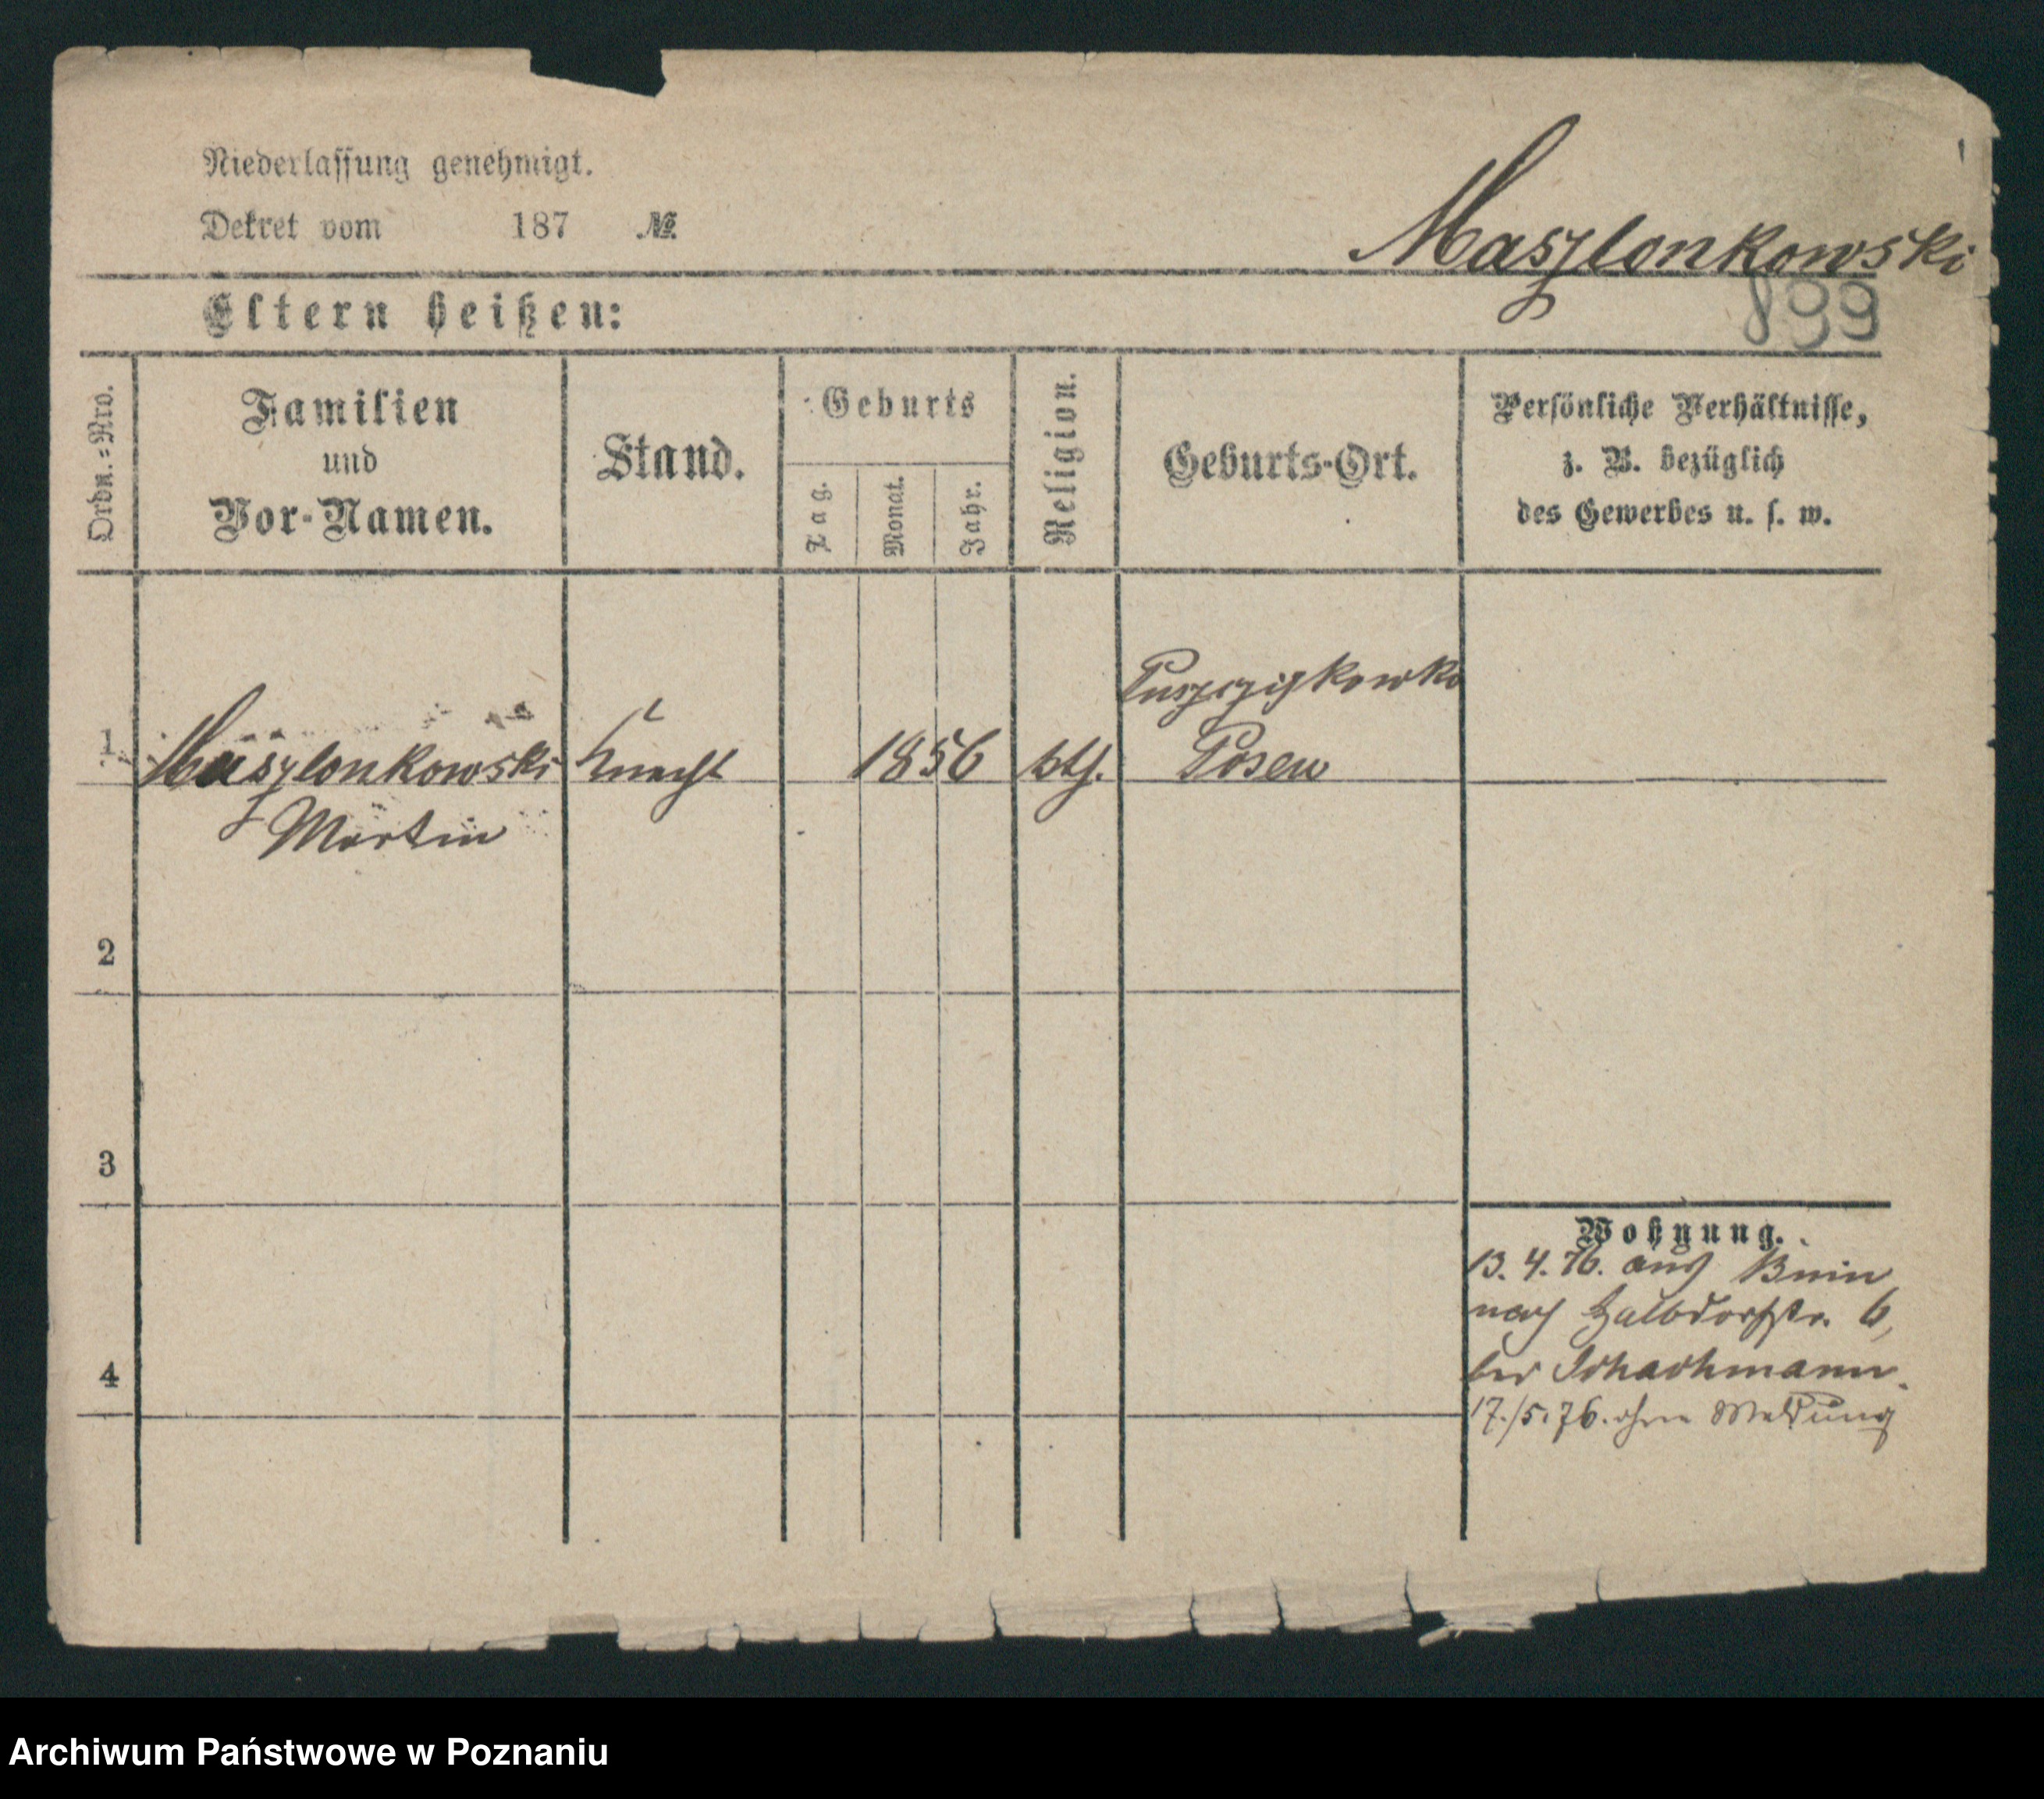 Niederlassung genehmigt.
Dekret vom 187 №
Maszlonkowski
899
Eltern heißen:
Ordn.=Nro.
Familien
und
Vor-Namen.
Stand.
Geburts
Tag.
Monat.
Jahr.
Religion.
Geburts-Ort.
Persönliche Verhältnisse,
z. B. bezüglich
des Gewerbes u. s. w.
1
Maszlonkowski
Martin
Knecht
1856
kth.
Puszczykowko
Posen
2
3
4
Wohnung.
13. 4. 76. aus Bnin
nach Halbdorfstr. 6,
bei Schachmann.
17./5.76. ohne Meldung
Archiwum Państwowe w Poznaniu